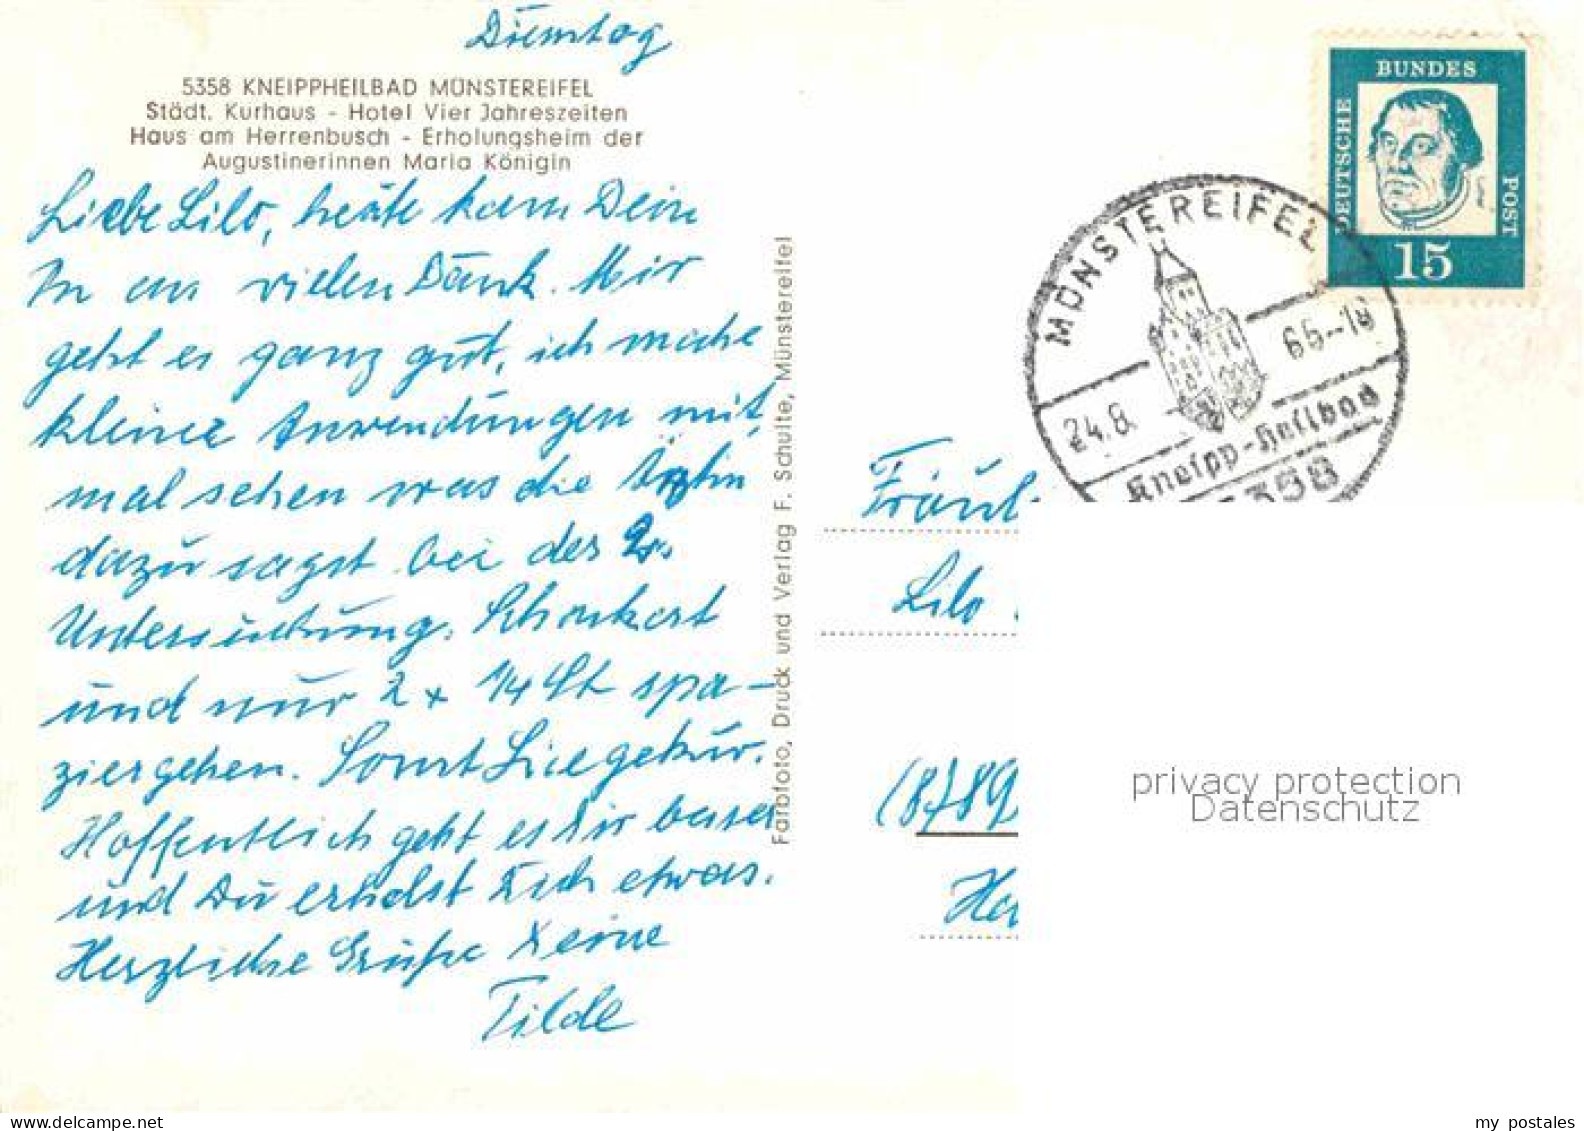 Dienstag
5358 KNEIPPHEILBAD MÜNSTEREIFEL
Städt. Kurhaus - Hotel Vier Jahreszeiten
Haus am Herrenbusch - Erholungsheim der
Augustinerinnen Maria Königin
Liebe Lilo, heute kam Dein
an vielen Dank. Mir
geht es ganz gut, ich mache
kleine Anwendungen mit,
mal sehen was die Ärztin
dazu sagt bei der 2.
Untersuchung. Schonkost
und nur 2 x 1/4 St spa-
ziergehen. Sonst Liegekur.
Hoffentlich geht es Dir besser
und Du erholst Dich etwas.
Herzliche Grüße Deine
Tilde
Farbfoto, Druck und Verlag F. Schulte, Münstereifel
DEUTSCHE
BUNDES
POST
15
MÜNSTEREIFEL
24.8.
65--18
Kneipp-Heilbad
5358
Fräul
Lilo
(8)89
Ha
privacy protection
Datenschutz
my postales